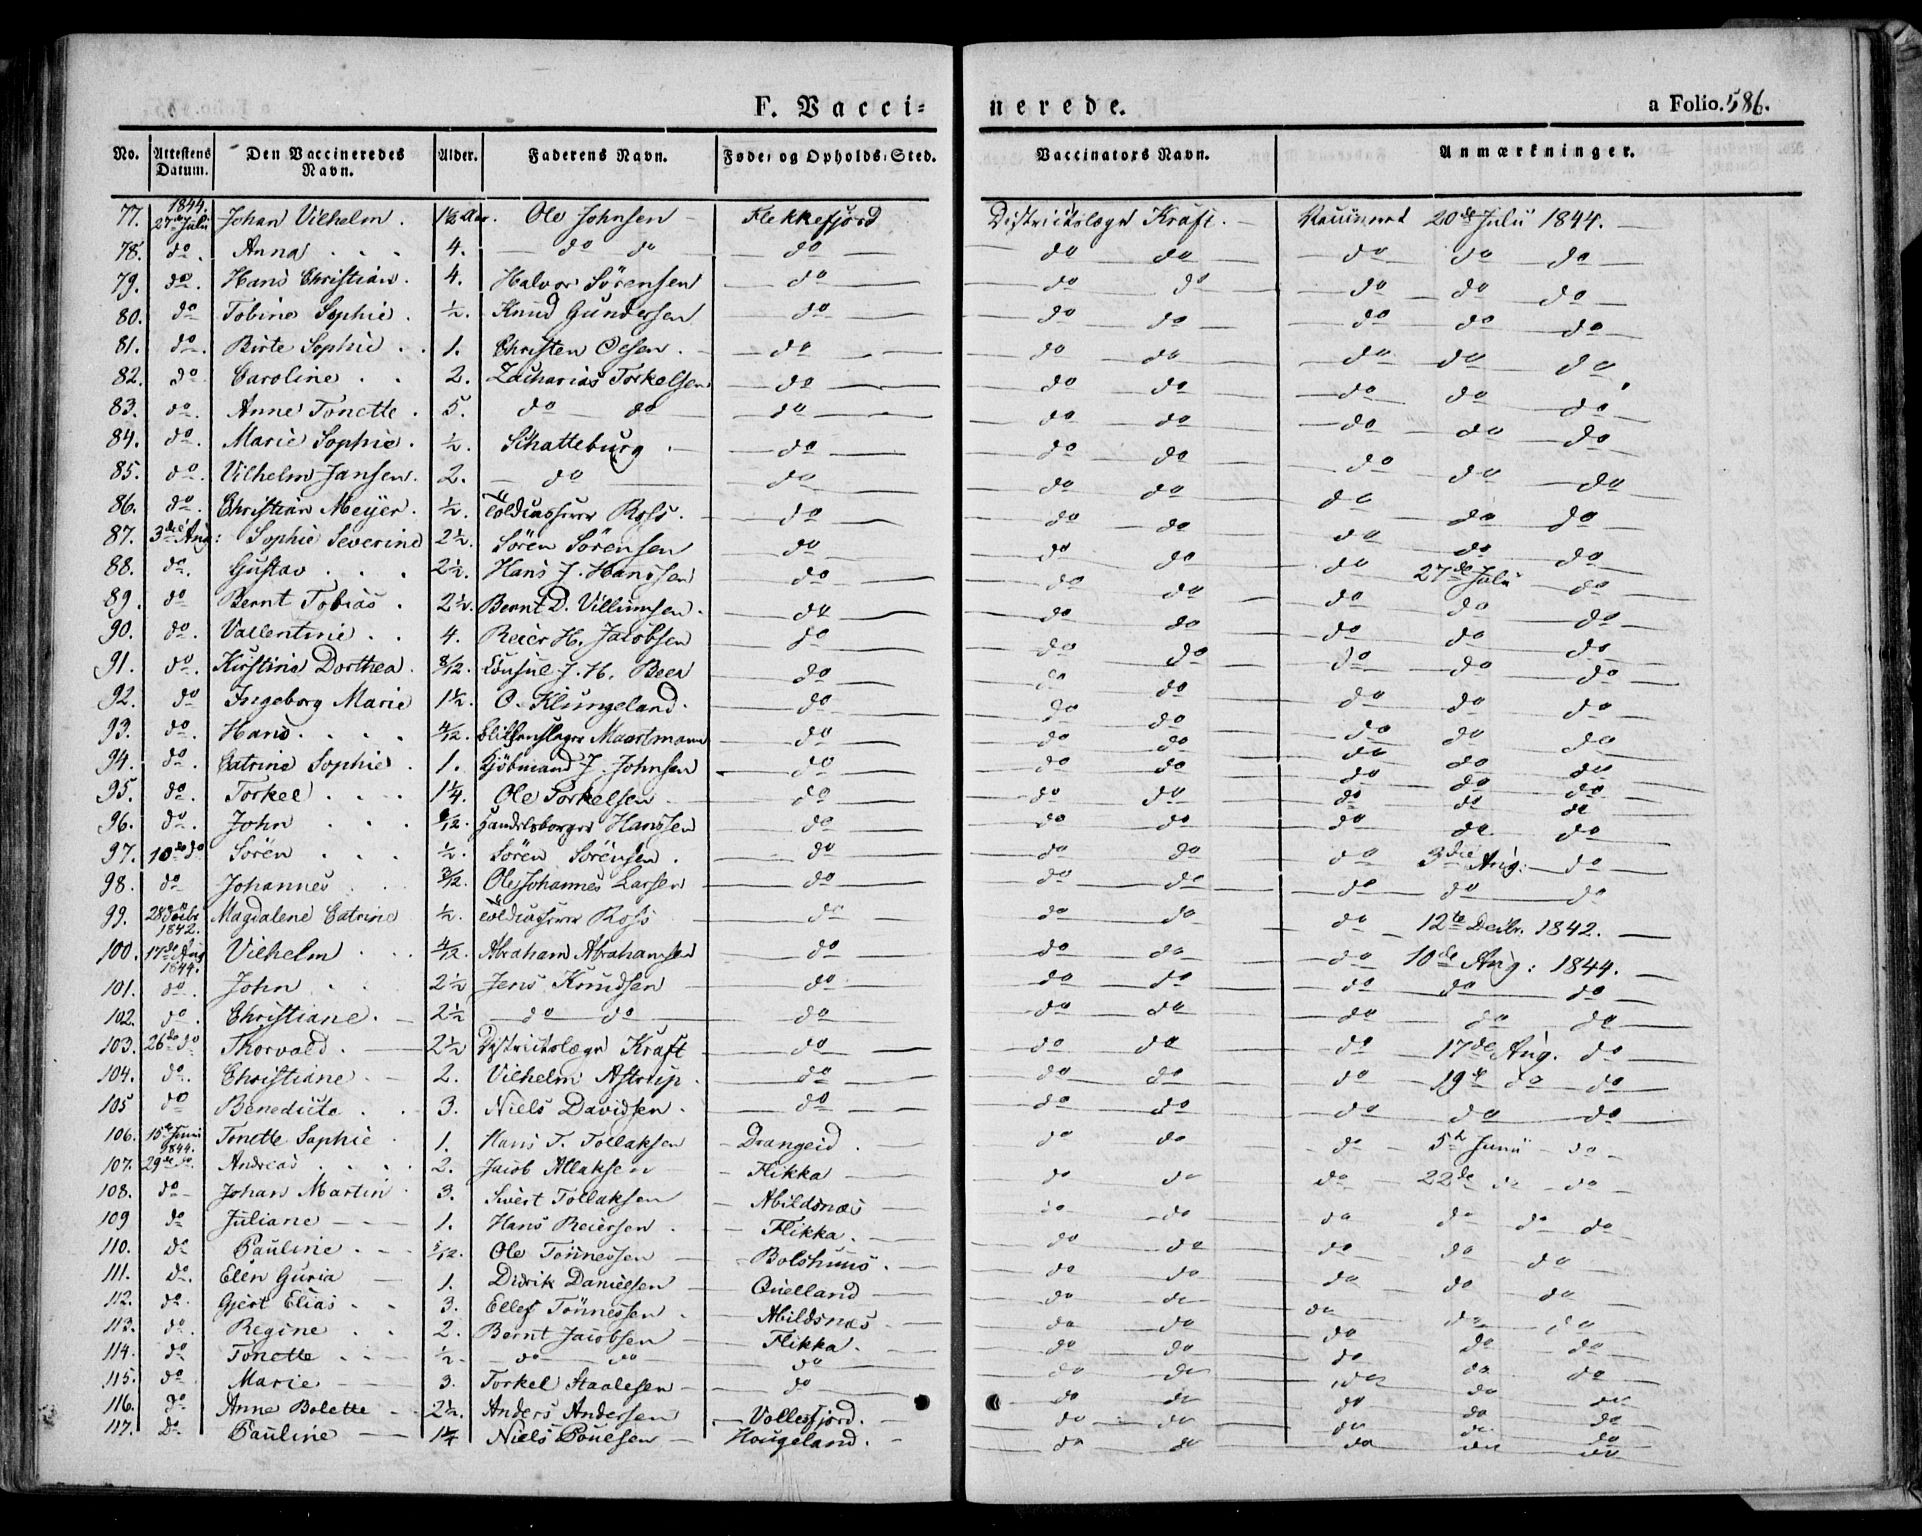 F. Vacci-nerede. a Folio. 586.
No. Attestens Datum. Den Vaccineredes Navn. Alder. Faderens Navn. Føde- og Opholds-Sted. Vaccinators Navn. Anmærkninger.
77. 1844. 27de Julii Johan Vilhelm. 1½ Aar. Ole Johnsen Flekkefjord Districtslæge Kraft. Vaccineret 20de Julii 1844.
78. do. Anna 4. do do do do do do do do
79. do. Hans Christian. 4. Halvor Sörensen do do do do do do
80. do Tobine Sophie. ½. Knud Gundersen do do do do do do
81. do. Birte Sophie 1. Christen Olsen. do do do do do do
82. do Caroline 2. Zacharias Torkelsen do do do do do do
83. do. Anne Tonette. 5. do do do do do do do do
84. do. Marie Sophie. ½. Schatteburg do do do do do do
85. do. Vilhelm Jansen. 2. do do do do do do do
86. do. Christian Meyer. ½. Toldcasserer Ross. do do do do do do
87. 3die Aug: Sophie Severine 2½. Sören Sörensen do do do do do do
88. do. Gustav 2½. Hans J. Hanssen do do do do 27de Julii do
89. do Bernt Tobias. 2½. Bernt D. Villumsen. do do do do do do
90. do. Vallentine 4. Reier H. Jacobsen do do do do do do
91. do. Kirstine Dorthea. 8/12. Consul J. H. Beer do do do do do do
92. do Ingeborg Marie 1½. O. Klungeland. do do do do do do
93. do. Hans 4/12. Maartmann do do do do do do
94. do. Catrine Sophie. 1. Kjöbmand J. Johnsen do do do do do do
95. do. Torkel 1¼. Ole Torkelsen do do do do do do
96. do. John 8/12. Handelsborger Hanssen do do do do do do
97. 10de do Sören ½. Sören Sörensen. do do do do 3die Aug: do
98. do Johannes 3/12. Ole Johannes Larsen do do do do do do
99. 28de Decbr 1842. Magdalene Catrine ½. Toldcasserer Ross do do do do 12te Decbr. 1842.
100. 17de Aug 1844. Vilhelm 4/12. Abraham Abrahamsen do do do do 10de Aug: 1844.
101. do. John 2½ Jens Knudsen do do do do do do
102. do. Christiane. 2½ do do do do do do do do
103. 26de do Thorvald. 2½ Districtslæge Kraft do do do do 17de Aug. do
104. do. Christiane 2. Vilhelm Astrup. do do do do 19de do do
105 do Benedicte 3. Niels Davidsen. do do do do do do
106. 15de Junii 1844. Tonette Sophie 1. Hans T. Tollaksen Drangeid do do do 5te Junii do
107. 29de do. Andreas 2. Jacob Allaksen Flikka do do do 22de do do
108. do Johan Martin 3. Sivert Tollaksen Abildsnæs do do do do do do
109 do Juliane 1. Hans Reiersen. Flikka. do do do do do
110. do Pauline 5/12. Ole Tönnessen Bolshuus. do do do do do
111. do. Elen Guria 1. Didrik Danielsen Quelland do do do do do
112. do. Gjert Elias 3. Ellef Tönnessen. Abildsnæs. do do do do do
113. do. Regine 2. Bernt Jacobsen Flikka. do do do do do
114. do Tonette ½. do do do do do do do do
115. do. Marie 3. Torkel Staalesen do do do do do do
116. do Anne Bolette 2½. Anders Andersen Vollesfjord. do do do do do
117. do Pauline 1¼ Niels Poulsen Hougeland. do do do do do